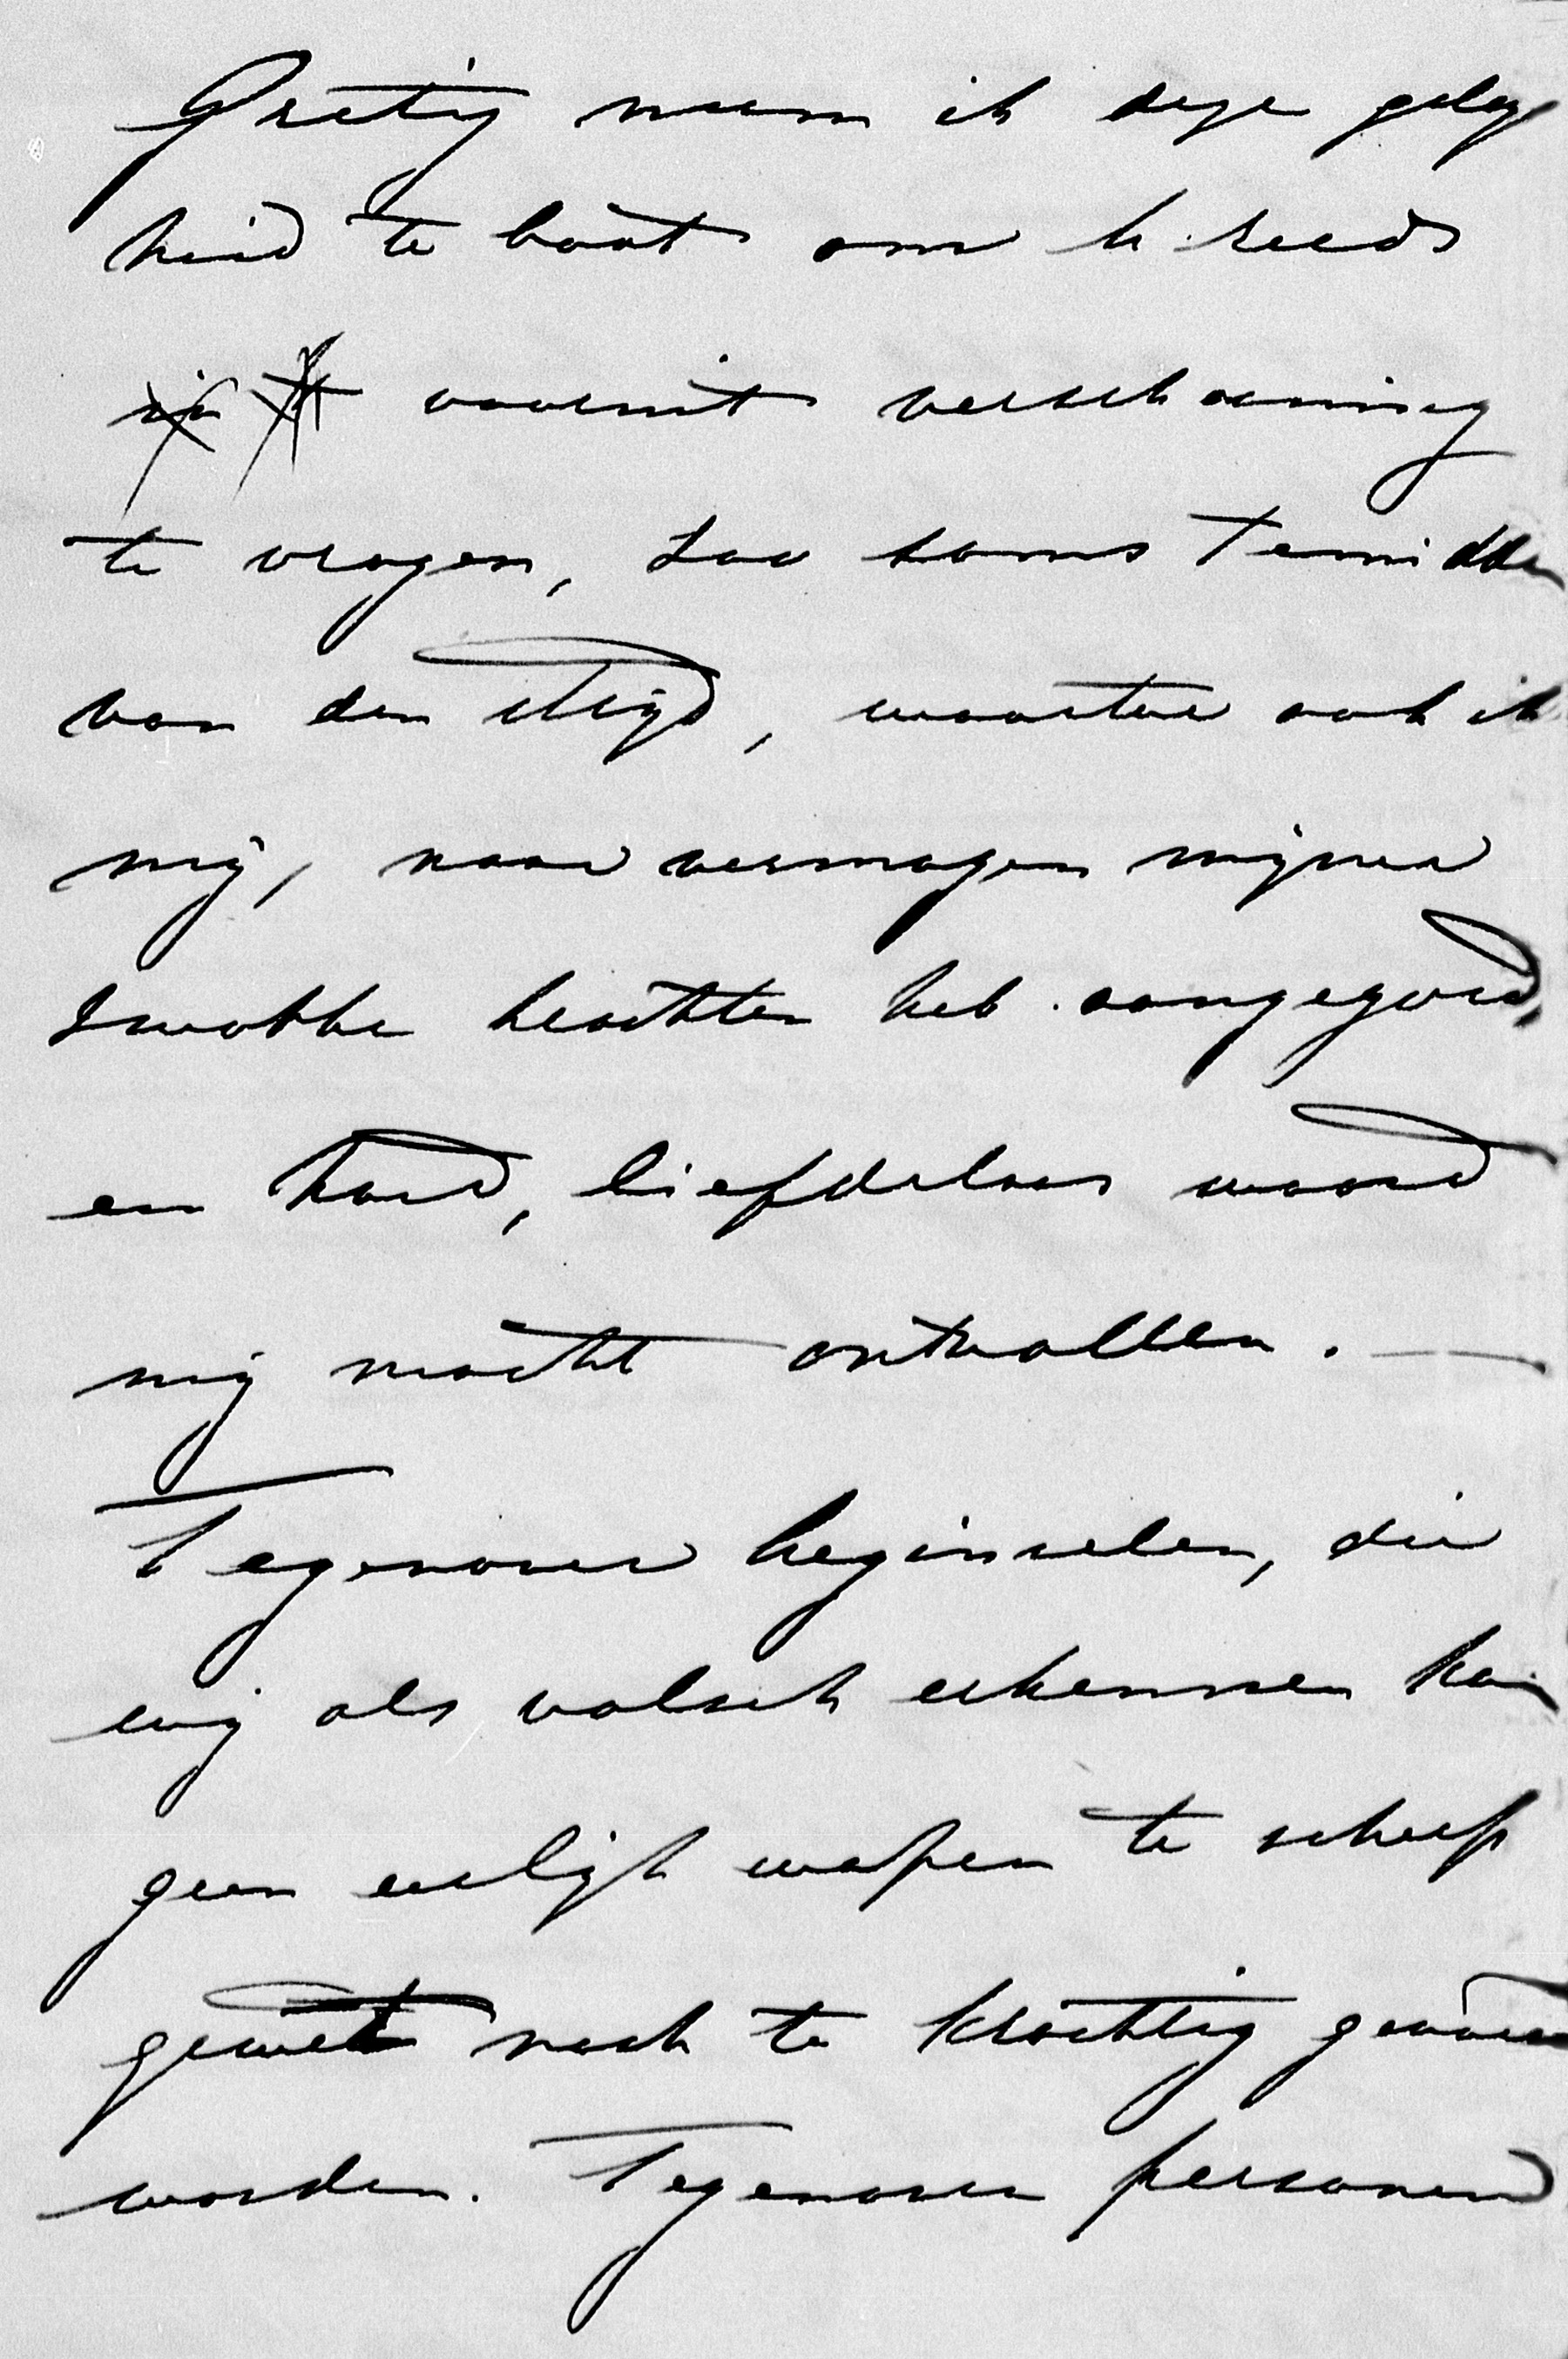 Gretig neem ik deze geleg
heid te baat om U reeds
vooruit verschooning
te vragen, zoo soms temidden
van den strijd, waartoe ook ik
mij, naar vermogen mijner
zwakke krachten heb aangegord,
een hard, liefdeloos woord
mij mocht ontvallen. —
Tegenover beginselen, die
wij als valsch erkennen kan
geen eerlijk wapen te scherp
gewet noch te krachtig gevoerd
worden. Tegenover personen